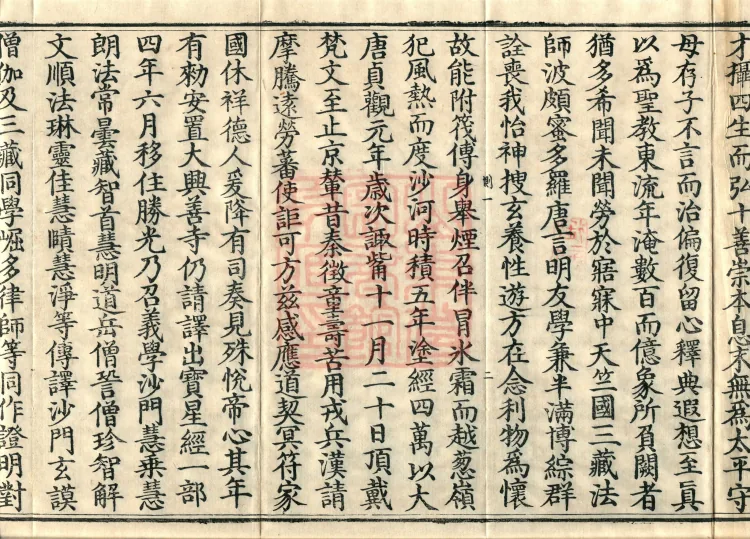 才攝四生而弘十善崇本息末無爲太平守
母存子不言而治偏復留心釋典遐想至眞
以爲聖教東流年淹數百而億象所負闕者
猶多希聞未聞勞於寤寐中天竺國三藏法
師波頗蜜多羅唐言明友學兼半滿博綜群
詮喪我怡神搜玄養性遊方在念利物爲懷
故能附筏傳身舉煙召伴冒氷霜而越葱嶺
犯風熱而度沙河時積五年塗經四萬以大
唐貞觀元年歲次諏觜十一月二十日頂戴
梵文至止京輦昔秦徵童壽苦用戎兵漢請
摩騰遠勞蕃使詎可方兹感應道契冥符家
國休祥德人爰降有司奏見殊悅帝心其年
有勑安置大興善寺仍請譯出寶星經一部
四年六月移住勝光乃召義學沙門慧乘慧
朗法常曇藏智首慧明道岳僧辯僧珍智解
文順法琳靈佳慧賾慧淨等傳譯沙門玄謨
僧伽及三藏同學崛多律師等同作證明對